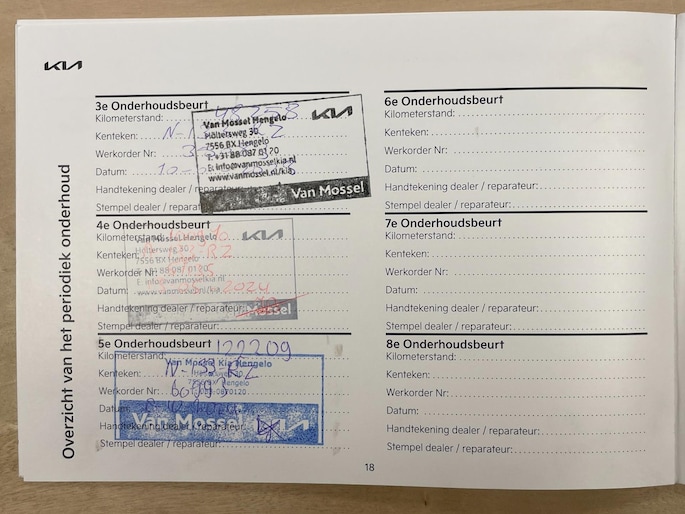 KIA
Overzicht van het periodiek onderhoud
3e Onderhoudsbeurt
Kilometerstand:
Kenteken:
Werkorder Nr:
Datum:
Handtekening dealer / reparateur:
Stempel dealer / reparateur:
Van Mossel Hengelo
KIA
Höltersweg 30
7556 BX Hengelo
T: +31 88 087 01 20
E: info@vanmosselkia.nl
www.vanmossel.nl/kia
Van Mossel
4e Onderhoudsbeurt
Kilometerstand:
Kenteken:
Werkorder Nr:
Datum: 2024
Handtekening dealer / reparateur:
Stempel dealer / reparateur:
Van Mossel Hengelo
KIA
Höltersweg 30
7556 BX Hengelo
T: +31 88 087 01 20
E: info@vanmosselkia.nl
www.vanmossel.nl/kia
Mossel
5e Onderhoudsbeurt
Kilometerstand: 122209
Kenteken:
Werkorder Nr:
Datum:
Handtekening dealer / reparateur:
Stempel dealer / reparateur:
Van Mossel Kia Hengelo
Hengelo
Van Mossel KIA
6e Onderhoudsbeurt
Kilometerstand:
Kenteken:
Werkorder Nr:
Datum:
Handtekening dealer / reparateur:
Stempel dealer / reparateur:
7e Onderhoudsbeurt
Kilometerstand:
Kenteken:
Werkorder Nr:
Datum:
Handtekening dealer / reparateur:
Stempel dealer / reparateur:
8e Onderhoudsbeurt
Kilometerstand:
Kenteken:
Werkorder Nr:
Datum:
Handtekening dealer / reparateur:
Stempel dealer / reparateur:
18